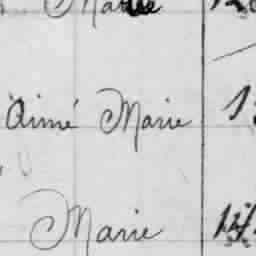 Marie
Aimé Marie 1
Marie 14